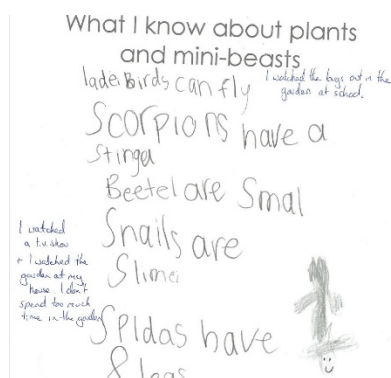 What I know about plants
and mini-beasts
ladeiBirds can fly
I watched the bugs out in the
garden at school.
Scorpions have a
stinga
Beetel are Smal
Snails are
Slime
I watched
a t.v. show
+ I watched the
garden at my
house. I don't
spend too much
time in the garden
Spidas have
8 legs